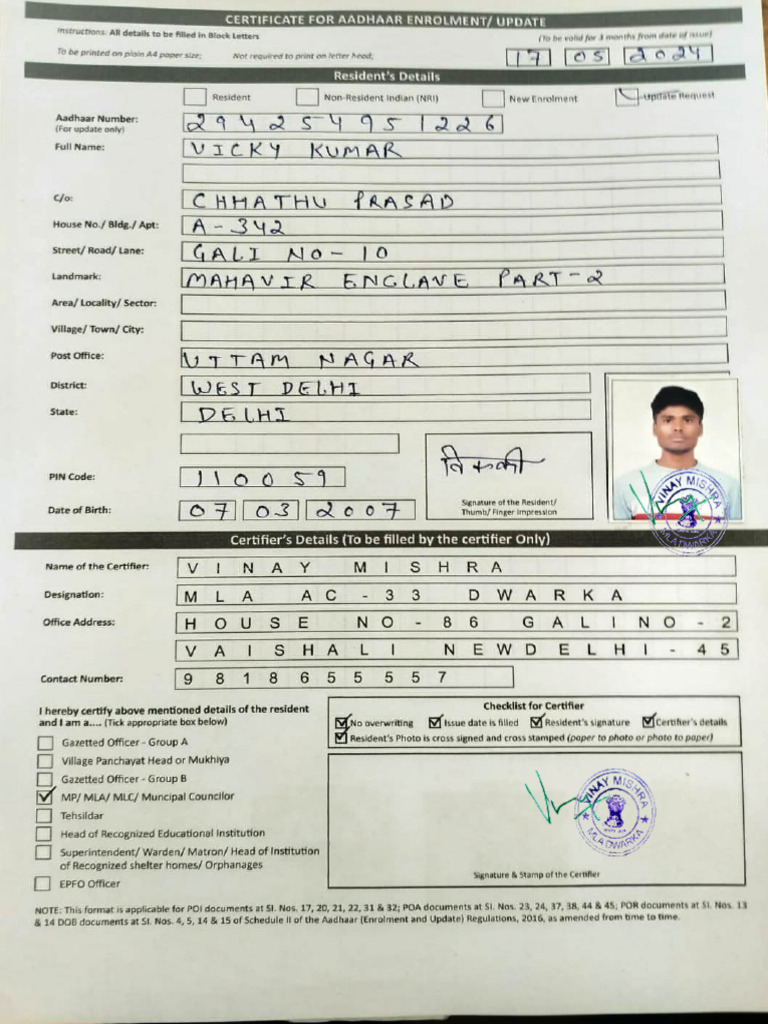 CERTIFICATE FOR AADHAAR ENROLMENT/ UPDATE
Instructions: All details to be filled in Block Letters
(To be valid for 3 months from date of issue)
To be printed on plain A4 paper size; Not required to print on letter head;
17 05 2024
Resident's Details
Resident Non-Resident Indian (NRI) New Enrolment Update Request
Aadhaar Number: 294254951226
(For update only)
Full Name: VICKY KUMAR
C/o: CHHATHU PRASAD
House No./ Bldg./ Apt: A-342
Street/ Road/ Lane: GALI NO-10
Landmark: MAHAVIR ENCLAVE PART-2
Area/ Locality/ Sector:
Village/ Town/ City:
Post Office: UTTAM NAGAR
District: WEST DELHI
State: DELHI
विक्की
PIN Code: 110059
Signature of the Resident/
Thumb/ Finger Impression
Date of Birth: 07 03 2007
VINAY MISHRA
MLA DWARKA
Certifier's Details (To be filled by the certifier Only)
Name of the Certifier: VINAY MISHRA
Designation: MLA AC-33 DWARKA
Office Address: HOUSE NO-86 GALI NO-2
VAISHALI NEWDELHI-45
Contact Number: 9818655557
I hereby certify above mentioned details of the resident
and I am a.... (Tick appropriate box below)
Checklist for Certifier
No overwriting Issue date is filled Resident's signature Certifier's details
Resident's Photo is cross signed and cross stamped (paper to photo or photo to paper)
Gazetted Officer - Group A
Village Panchayat Head or Mukhiya
Gazetted Officer - Group B
MP/ MLA/ MLC/ Muncipal Councilor
Tehsildar
Head of Recognized Educational Institution
Superintendent/ Warden/ Matron/ Head of Institution
of Recognized shelter homes/ Orphanages
EPFO Officer
VINAY MISHRA
MLA DWARKA
Signature & Stamp of the Certifier
NOTE: This format is applicable for POI documents at Sl. Nos. 17, 20, 21, 22, 31 & 32; POA documents at Sl. Nos. 23, 24, 37, 38, 44 & 45; POR documents at Sl. Nos. 13
& 14 DOB documents at Sl. Nos. 4, 5, 14 & 15 of Schedule II of the Aadhaar (Enrolment and Update) Regulations, 2016, as amended from time to time.